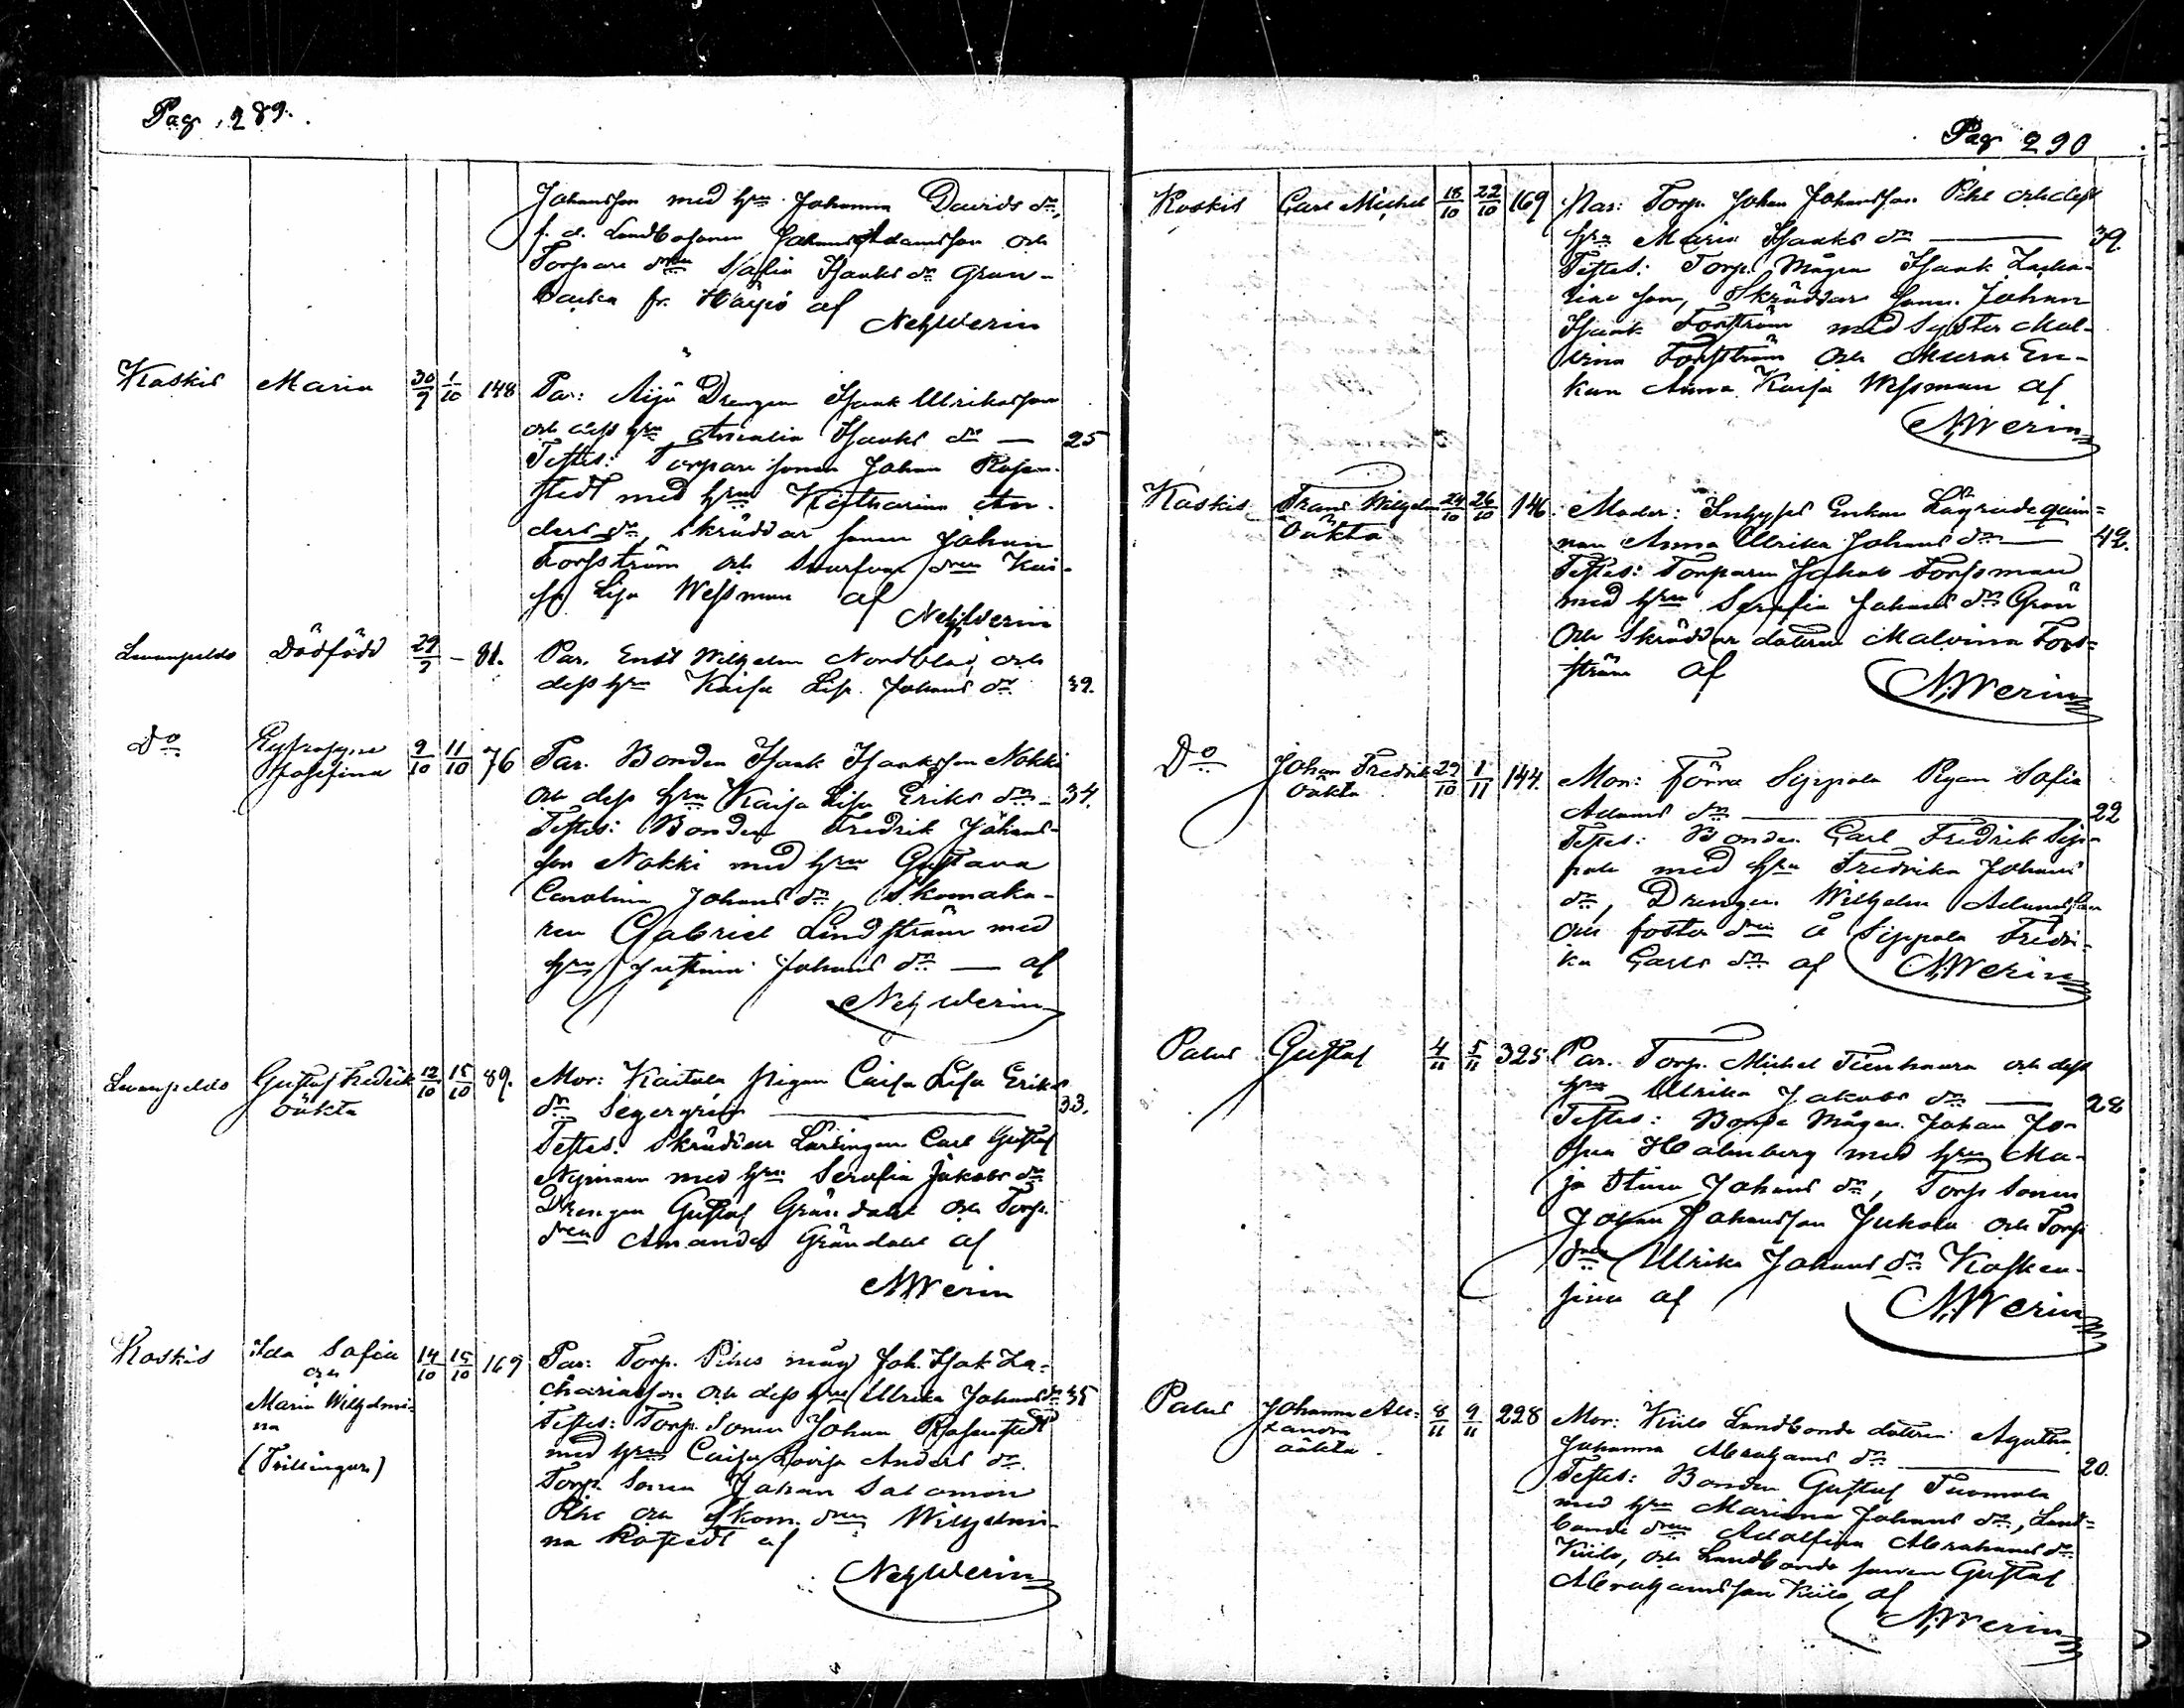 Pag. 289.
Johansson med hru Johanna Davids dr,
f. d. Landbosonen Johan Adamsson och
Torpare dren Sofia Isaks dr Grön-
backa fr. af
NehWerin
Koskis Maria 30/9 1/10 148 Par: Äijö Drengen Isaak Ulriksson
och dess hru Amalia Isaks dr — 25
Testes: Torpare sonen Johan Rosen-
stedt med hru Katharina An-
ders dr, Skräddar sonen Johan
Forsström och dren Kai-
sa Lisa Wessman af
NehWerin
Dödfödd 29/9 – 81. Par. Ernst Wilhelm Nordblad och
dess hru Kaisa Lisa Johans dr 39.
Do Eufrosyne
Josefina 9/10 11/10 76 Par. Bonden Isaak Isaksson Nokki
och dess hru Kaisa Lisa Eriks dr – 34.
Testes: Bonden Fredrik Johans-
son Nokki med hru Gustava
Carolina Johans dr, Skomaka-
ren Gabriel Lindström med
hru Justina Johans dr — af
NehWerin
Gustaf Fredrik 12/10 15/10 89.
oäkta
Mor: Kaitala pigan Caisa Lisa Eriks
dr Segergren 33.
Testes: Skräddar Lärlingen Carl Gustaf
Nyman med hru Serafia Jakobs dr
Drengen Gustaf Gröndahl och Torp.
dren Amanda Gröndahl af
NWerin
Koskis Ida Sofia 14/10 15/10 169
och
Maria Wilhelmi-
na
(Trillingar)
Par: Torp. Pihls måg Joh. Isak Za-
chariasson och dess hru Ulrika Johans dr 35
Testes: Torp. Sonen Johan Rosenstedt
med hru Caisa Lovisa Anders dr
Torp. Sonen Johan Salomon
Pihl och Skom. dren Wilhelmi-
na af
NehWerin
Pag. 290
Koskis Carl Michel 18/10 22/10 169 Par: Torp. Johan Johansson Pihl och dess
hru Maria Isaks dr — 39.
Testes: Torp. Mågen Isaak Zacha-
rias son, Skräddar sonen Johan
Isaak Forsström med Syster Mal-
vina Forsström och Murar En-
kan Anna Kaisa Wessman af
NWerin
Koskis Frans Wilhelm 24/10 26/10 146.
oäkta
Moder: Inhyses Enkan Lägradequin-
nan Anna Ulrika Johans dr — 42.
Testes: Torparen Jakob Forssman
med hru Serafia Johans dr Grön
och Skräddar dottren Malvina Fors-
ström af
NWerin
Do Johan Fredrik 29/10 1/11 144.
oäkta
Mor: Förra Seppala Pigan Sofia
Adams dr — 22
Testes: Bonden Carl Fredrik Sep-
pala med hru Fredrika Johans
dr, Drengen Wilhelm Adamsson
och foster dren å Seppala Fredri-
ka Carls dr af NWerin
Palus Gustaf 4/11 5/11 325 Par. Torp. Michel Tienhaara och dess
hru Ulrika Jakobs dr — 28
Testes: Bonde Mågen Johan Jo-
sua Holmberg med hru Ma-
ja Stina Johans dr, Torp sonen
Johan Johansson Jukola och Torp
dren Ulrika Johans dr Kosken-
sivu af NWerin
Palus Johanna Alex- 8/11 9/11 228
andra
oäkta
Mor: Kiilo Landbonde dottren Agatha
Johanna Abrahams dr — 20.
Testes: Bonden Gustaf Tuomola
med hru Mariana Johans dr, Land-
bonde dren Adolfina Abrahams dr
Kiilo, och Landbonde sonen Gustaf
Abrahamsson Kiilo af
NWerin